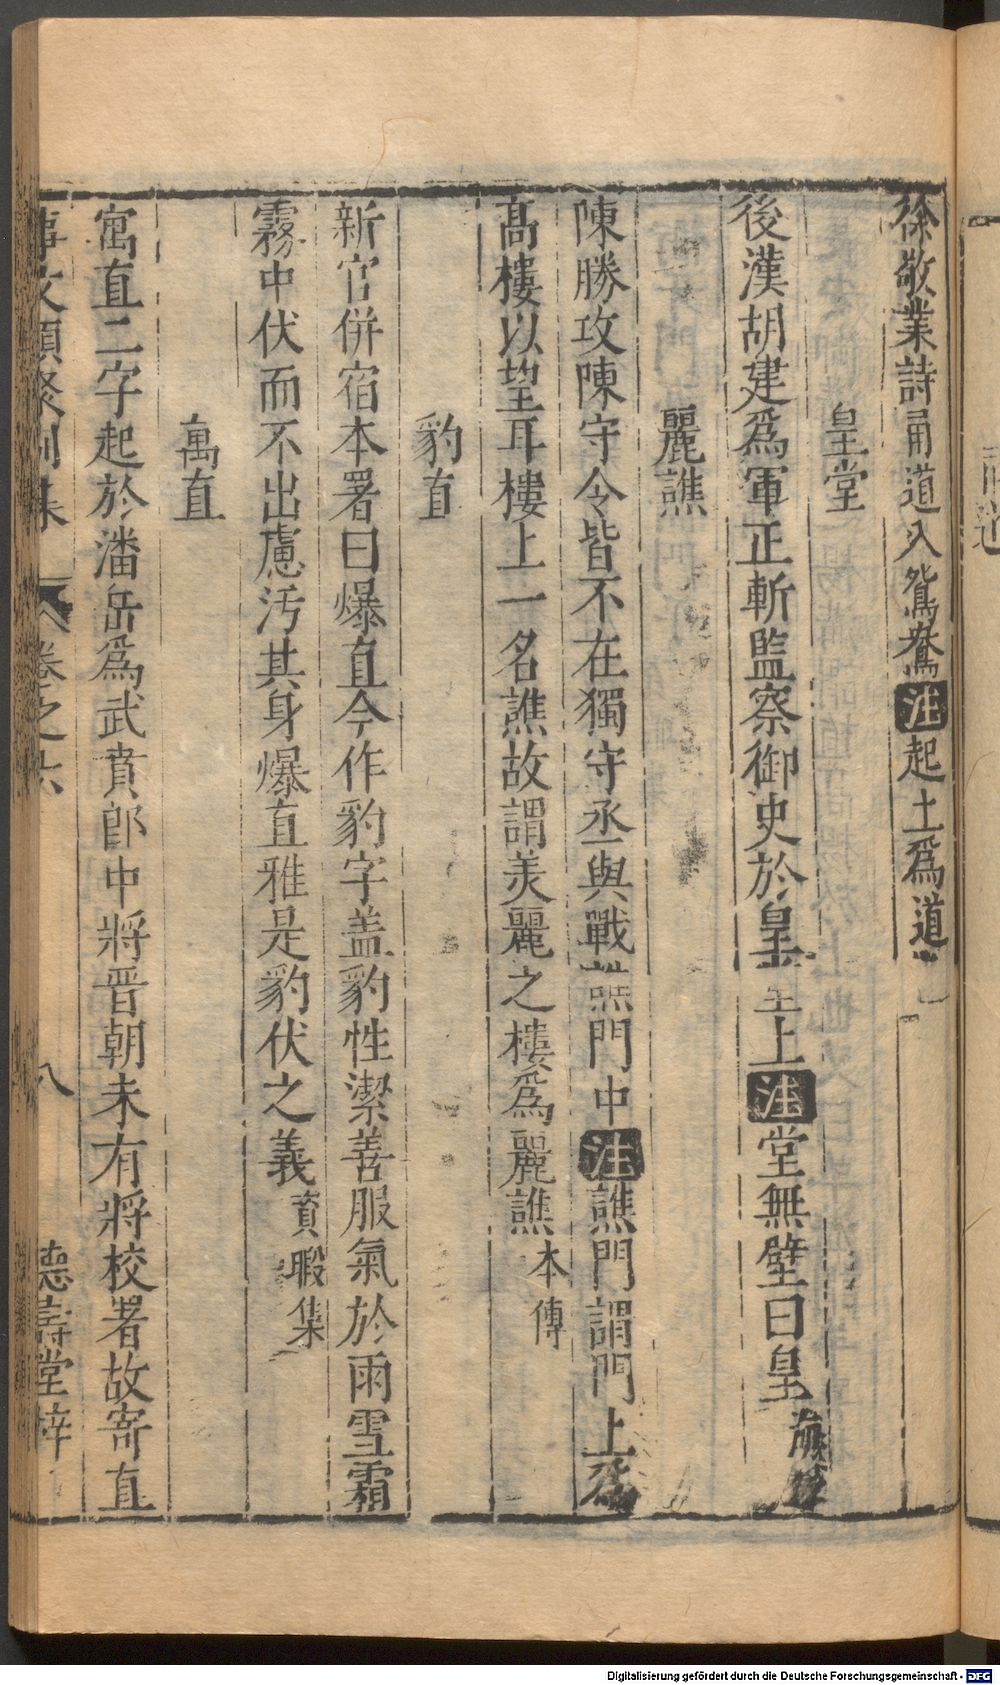 徐敬業詩甬道入鴛鴦注起土爲道
皇堂
後漢胡建爲軍正斬監察御史於皇堂上注堂無壁曰皇
麗譙
陳勝攻陳守令皆不在獨守丞與戰譙門中注譙門謂門上爲
髙樓以望耳樓上一名譙故謂美麗之樓爲麗譙本傳
豹直
新官併宿本署曰爆直今作豹字盖豹性潔善服氣於雨雪霜
霧中伏而不出慮汚其身爆直雅是豹伏之義資暇集
寓直
寓直二字起於潘岳爲武賁郎中將晋朝未有將校署故寄直
事文類聚別集 卷之六 八 德壽堂梓
Digitalisierung gefördert durch die Deutsche Forschungsgemeinschaft - DFG